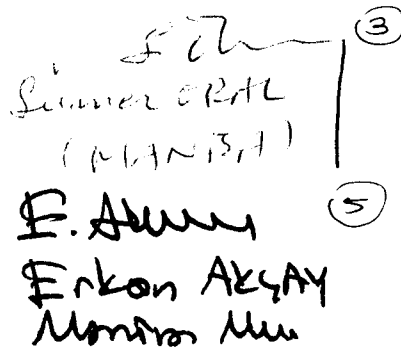 3
Sümer ORAL
(MANİSA)
5
E. Akçay
Erkan AKÇAY
Manisa